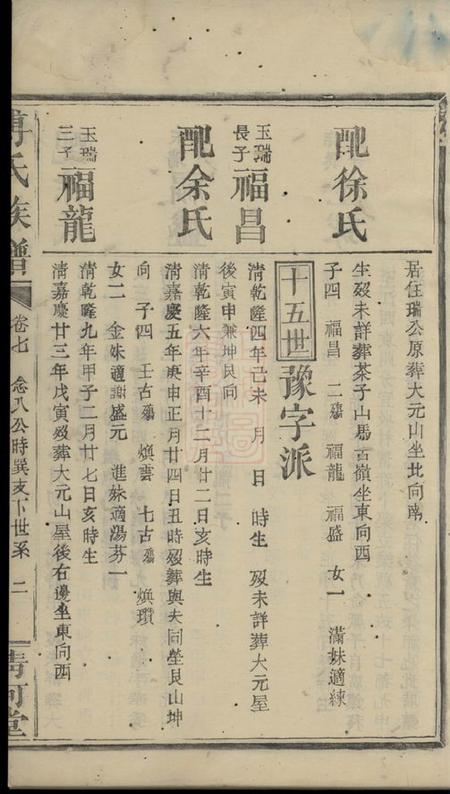 居住瑞公原葬大元山坐北向南
配徐氏
生歿未詳葬茶子山馬古嶺坐東向西
子四 福昌 二殤 福龍 福盛 女一 滿妹適練
十五世豫字派
玉瑞長子福昌
清乾隆四年己未 月 日 時生 歿未詳葬大元屋
後寅申兼坤艮向
配余氏
清乾隆六年辛酉十二月廿二日亥時生
清嘉慶五年庚申正月廿四日丑時歿葬與夫同塋艮山坤
向 子四 壬古殤 煥雲 七古殤 煥瓚
女二 金妹適謝盛元 進妹適湯芬一
玉瑞三子福龍
清乾隆九年甲子二月十七日亥時生
清嘉慶廿三年戊寅歿葬大元山屋後右邊坐東向西
氏族譜
卷七
念八公時巽支下世系 二
河堂